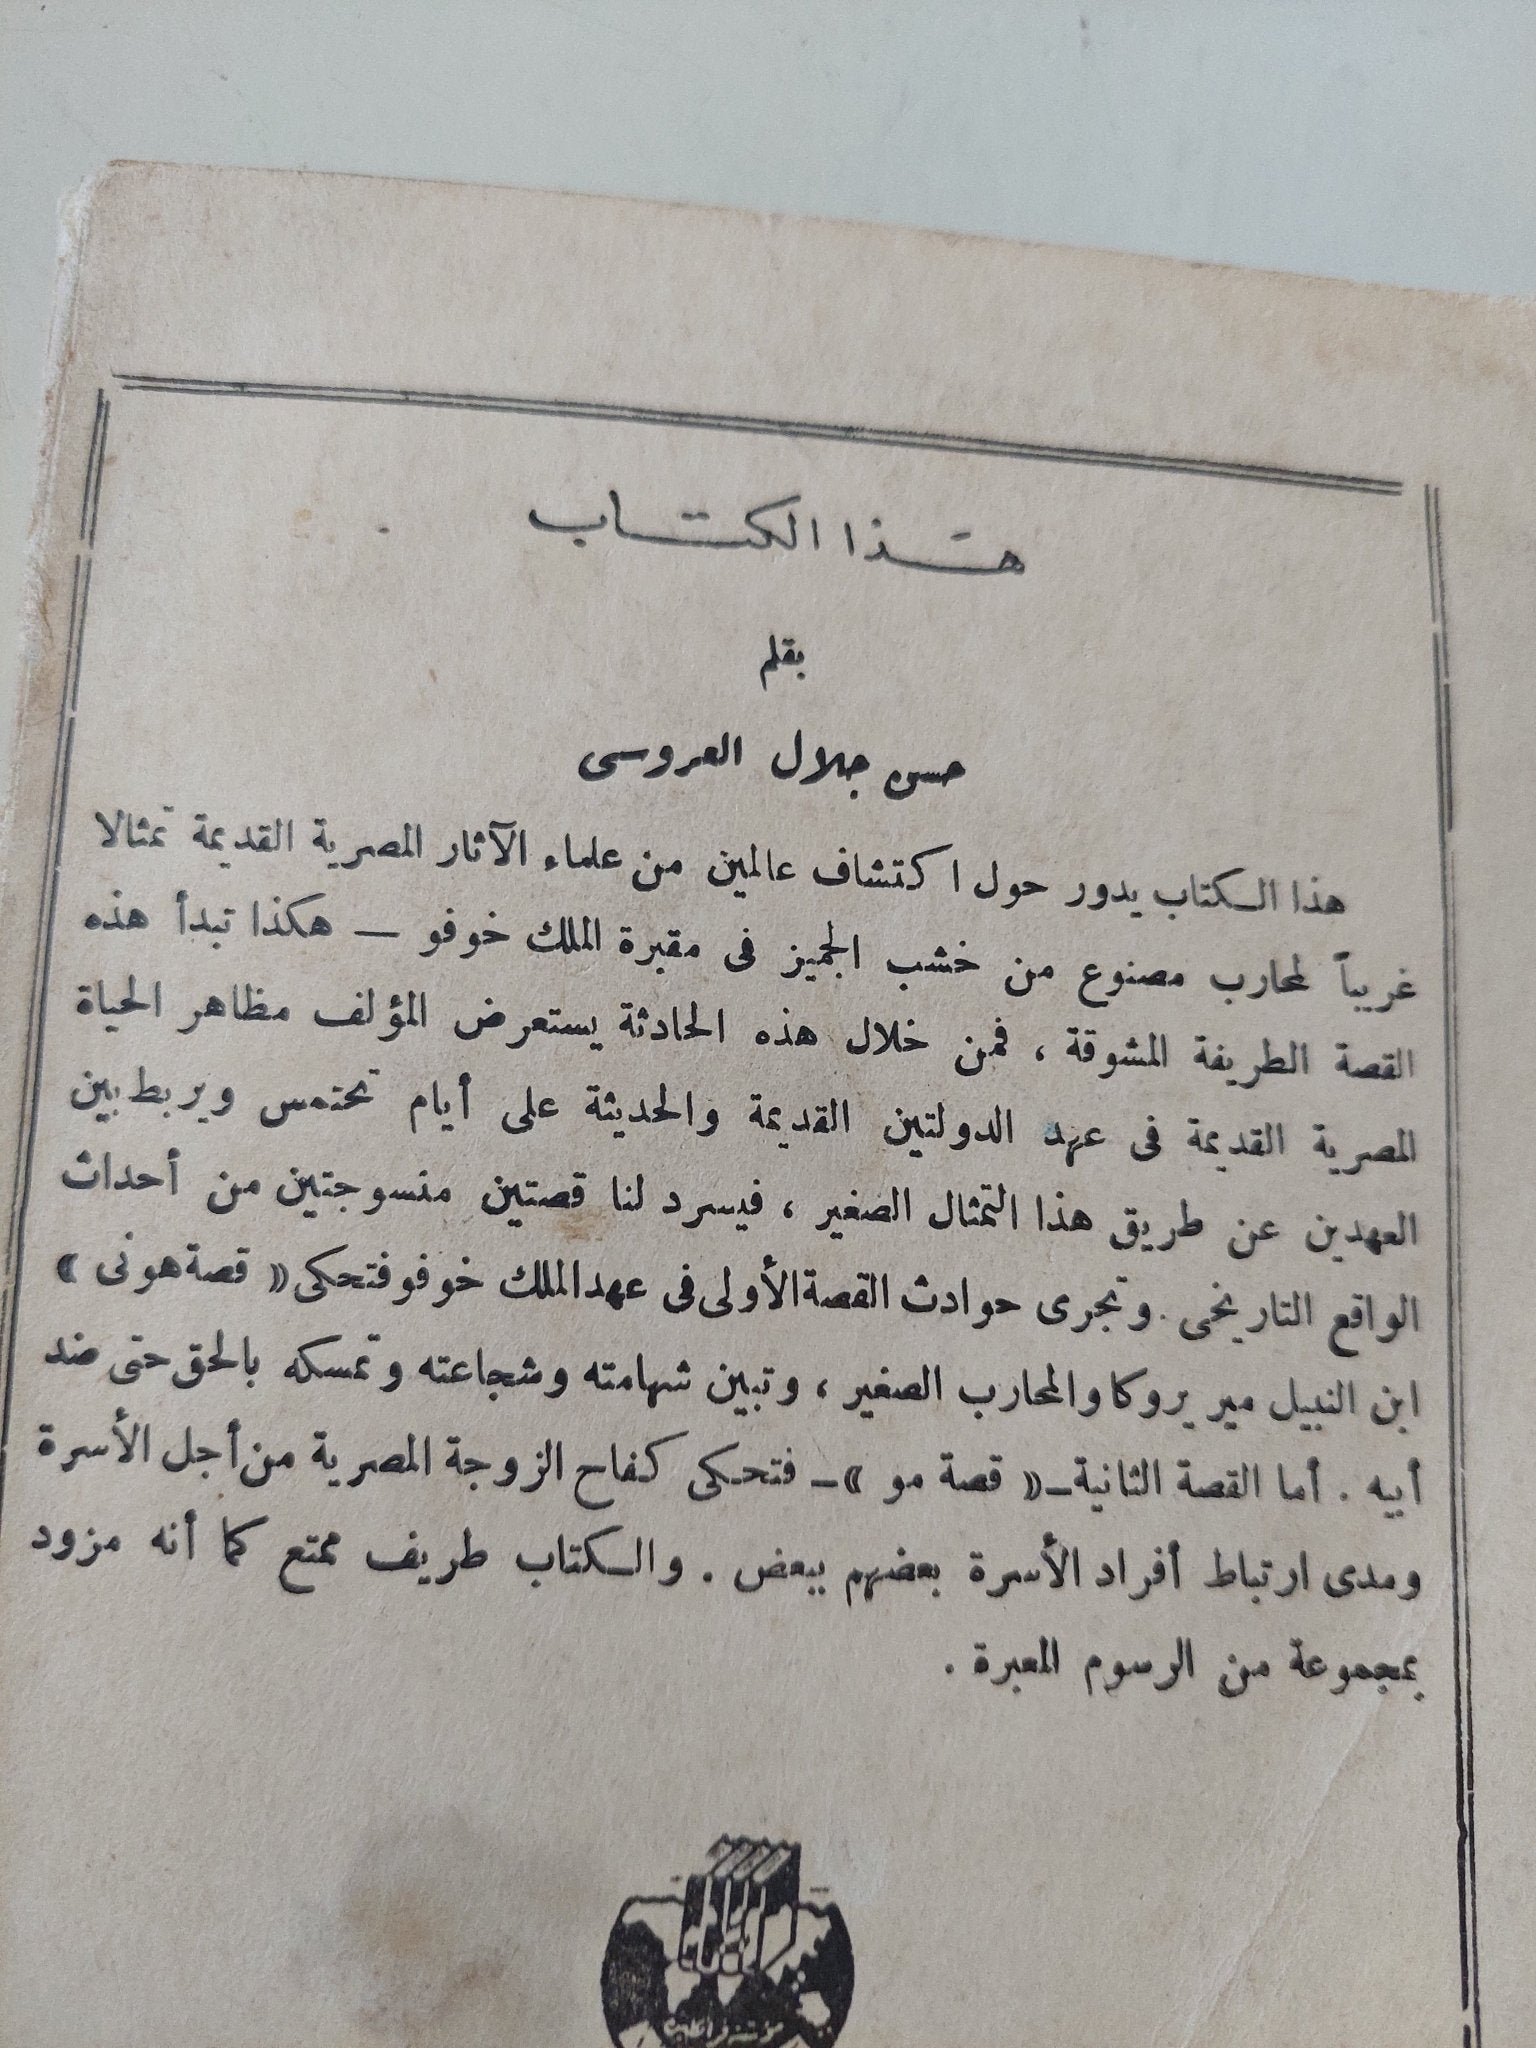 هذا الكتاب
بقلم
حسن جلال العروسى
هذا الكتاب يدور حول اكتشاف عالمين من علماء الآثار المصرية القديمة تمثالا
غريباً لمحارب مصنوع من خشب الجميز فى مقبرة الملك خوفو — هكذا تبدأ هذه
القصة الطريفة المشوقة ، فمن خلال هذه الحادثة يستعرض المؤلف مظاهر الحياة
المصرية القديمة فى عهد الدولتين القديمة والحديثة على أيام تحتمس ويربط بين
العهدين عن طريق هذا التمثال الصغير ، فيسرد لنا قصتين منسوجتين من أحداث
الواقع التاريخى . وتجرى حوادث القصة الأولى فى عهد الملك خوفو فتحكى « قصة هونى »
ابن النبيل مير يروكا والمحارب الصغير ، وتبين شهامته وشجاعته وتمسكه بالحق حتى ضد
أبيه . أما القصة الثانية – « قصة مو » – فتحكى كفاح الزوجة المصرية من أجل الأسرة
ومدى ارتباط أفراد الأسرة بعضهم ببعض . والكتاب طريف ممتع كما أنه مزود
بمجموعة من الرسوم المعبرة .
مؤسسة فرانكلين